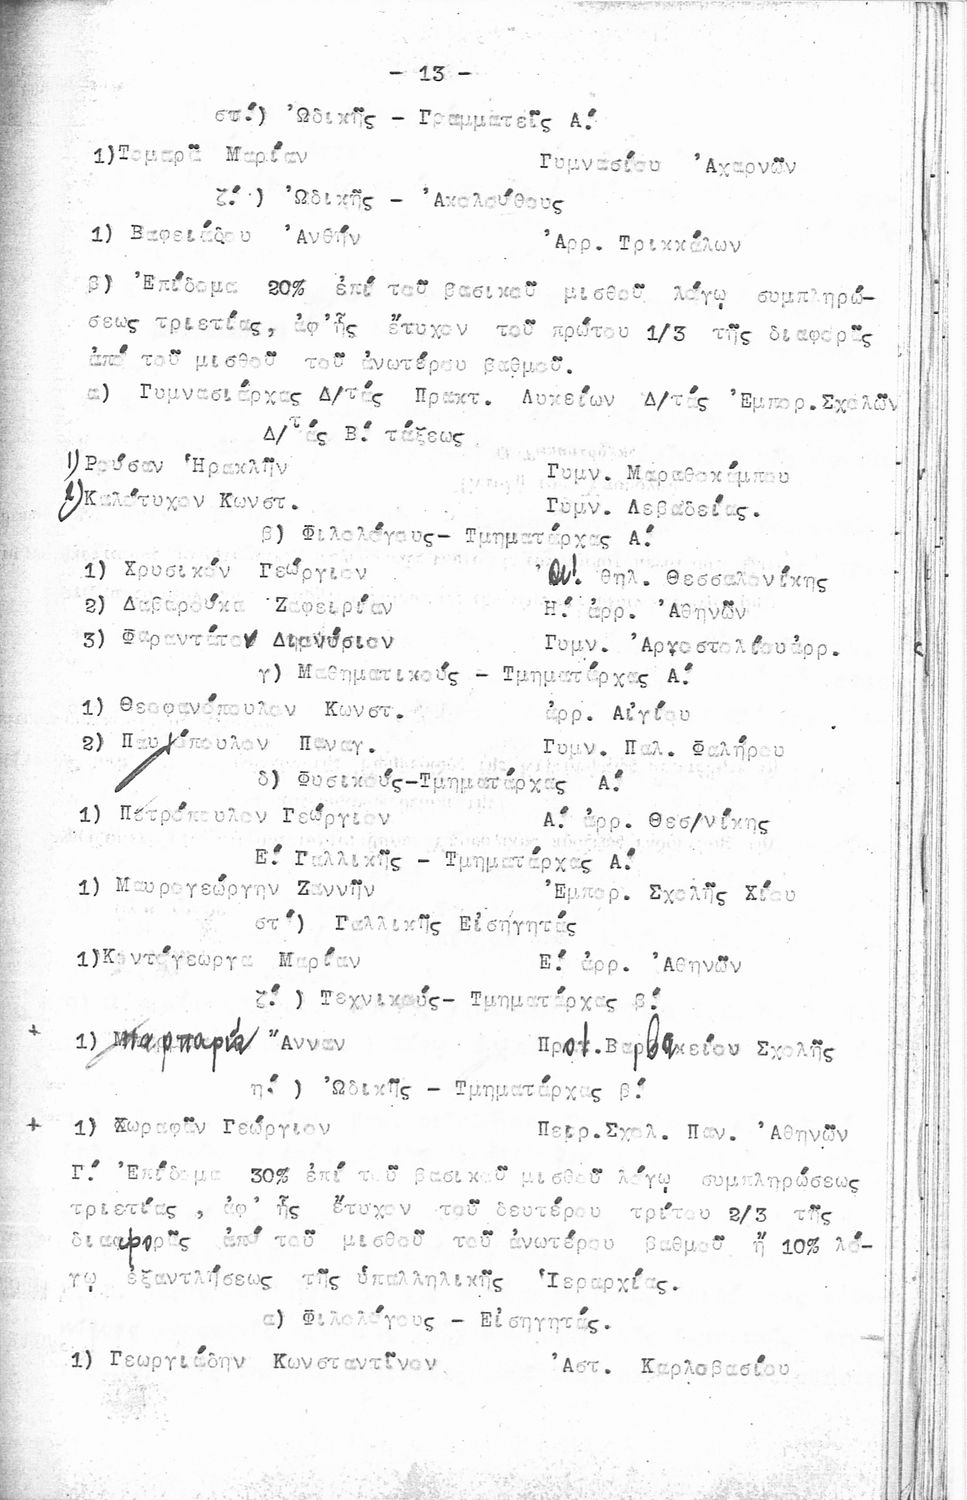 - 13 -
στ΄) Ὠδικῆς - Γραμματεῖς Α΄.
1) Τομαρᾶ Μαρίαν Γυμνασίου Ἀχαρνῶν
ζ΄.) Ὠδικῆς - Ἀκολούθους
1) Βαφειάδου Ἀνθήν Ἀρρ. Τρικκάλων
β) Ἐπίδομα 20% ἐπί τοῦ βασικοῦ μισθοῦ λόγῳ συμπληρώ-
σεως τριετίας, ἀφ'ἧς ἔτυχον τοῦ πρώτου 1/3 τῆς διαφορᾶς
ἀπό τοῦ μισθοῦ τοῦ ἀνωτέρου βαθμοῦ.
α) Γυμνασιάρχας Δ/τάς Πρακτ. Λυκείων Δ/τάς Ἐμπορ.Σχολῶν
Δ/τάς Β΄. τάξεως
1) Ρούσαν Ἡρακλῆν Γυμν. Μαραθοκάμπου
2) Καλότυχον Κωνστ. Γυμν. Λεβαδείας.
β) Φιλολόγους- Τμηματάρχας Α΄.
1) Χρυσικόν Γεώργιον θηλ. Θεσσαλονίκης
2) Δαβαρούκα Ζαφειρίαν Η΄. ἀρρ. Ἀθηνῶν
3) Φαραντάτον Διονύσιον Γυμν. Ἀργοστολίου ἀρρ.
γ) Μαθηματικούς - Τμηματάρχας Α΄.
1) Θεοφανόπουλον Κωνστ. ἀρρ. Αἰγίου
2) Παυλόπουλον Παναγ. Γυμν. Παλ. Φαλήρου
δ) Φυσικούς-Τμηματάρχας Α΄.
1) Πετρόπουλον Γεώργιον Α΄. ἀρρ. Θεσ/νίκης
Ε΄. Γαλλικῆς - Τμηματάρχας Α΄.
1) Μαυρογεώργην Ζαννῆν Ἐμπορ. Σχολῆς Χίου
στ΄) Γαλλικῆς Εἰσηγητάς
1) Κοντόγεωργα Μαρίαν Ε΄. ἀρρ. Ἀθηνῶν
ζ΄. ) Τεχνικούς- Τμηματάρχας β΄.
+ 1) Μπαρμπαριά Ἄνναν Προτ.Βαρβακείου Σχολῆς
η΄. ) Ὠδικῆς - Τμηματάρχας β΄.
+ 1) Χωραφᾶν Γεώργιον Πειρ.Σχολ. Παν. Ἀθηνῶν
Γ΄. Ἐπίδομα 30% ἐπί τοῦ βασικοῦ μισθοῦ λόγῳ συμπληρώσεως
τριετίας , ἀφ' ἧς ἔτυχον τοῦ δευτέρου τρίτου 2/3 τῆς
διαφορᾶς ἀπό τοῦ μισθοῦ τοῦ ἀνωτέρου βαθμοῦ ἤ 10% λό-
γῳ ἐξαντλήσεως τῆς ὑπαλληλικῆς Ἱεραρχίας.
α) Φιλολόγους - Εἰσηγητάς.
1) Γεωργιάδην Κωνσταντῖνον Ἀστ. Καρλοβασίου